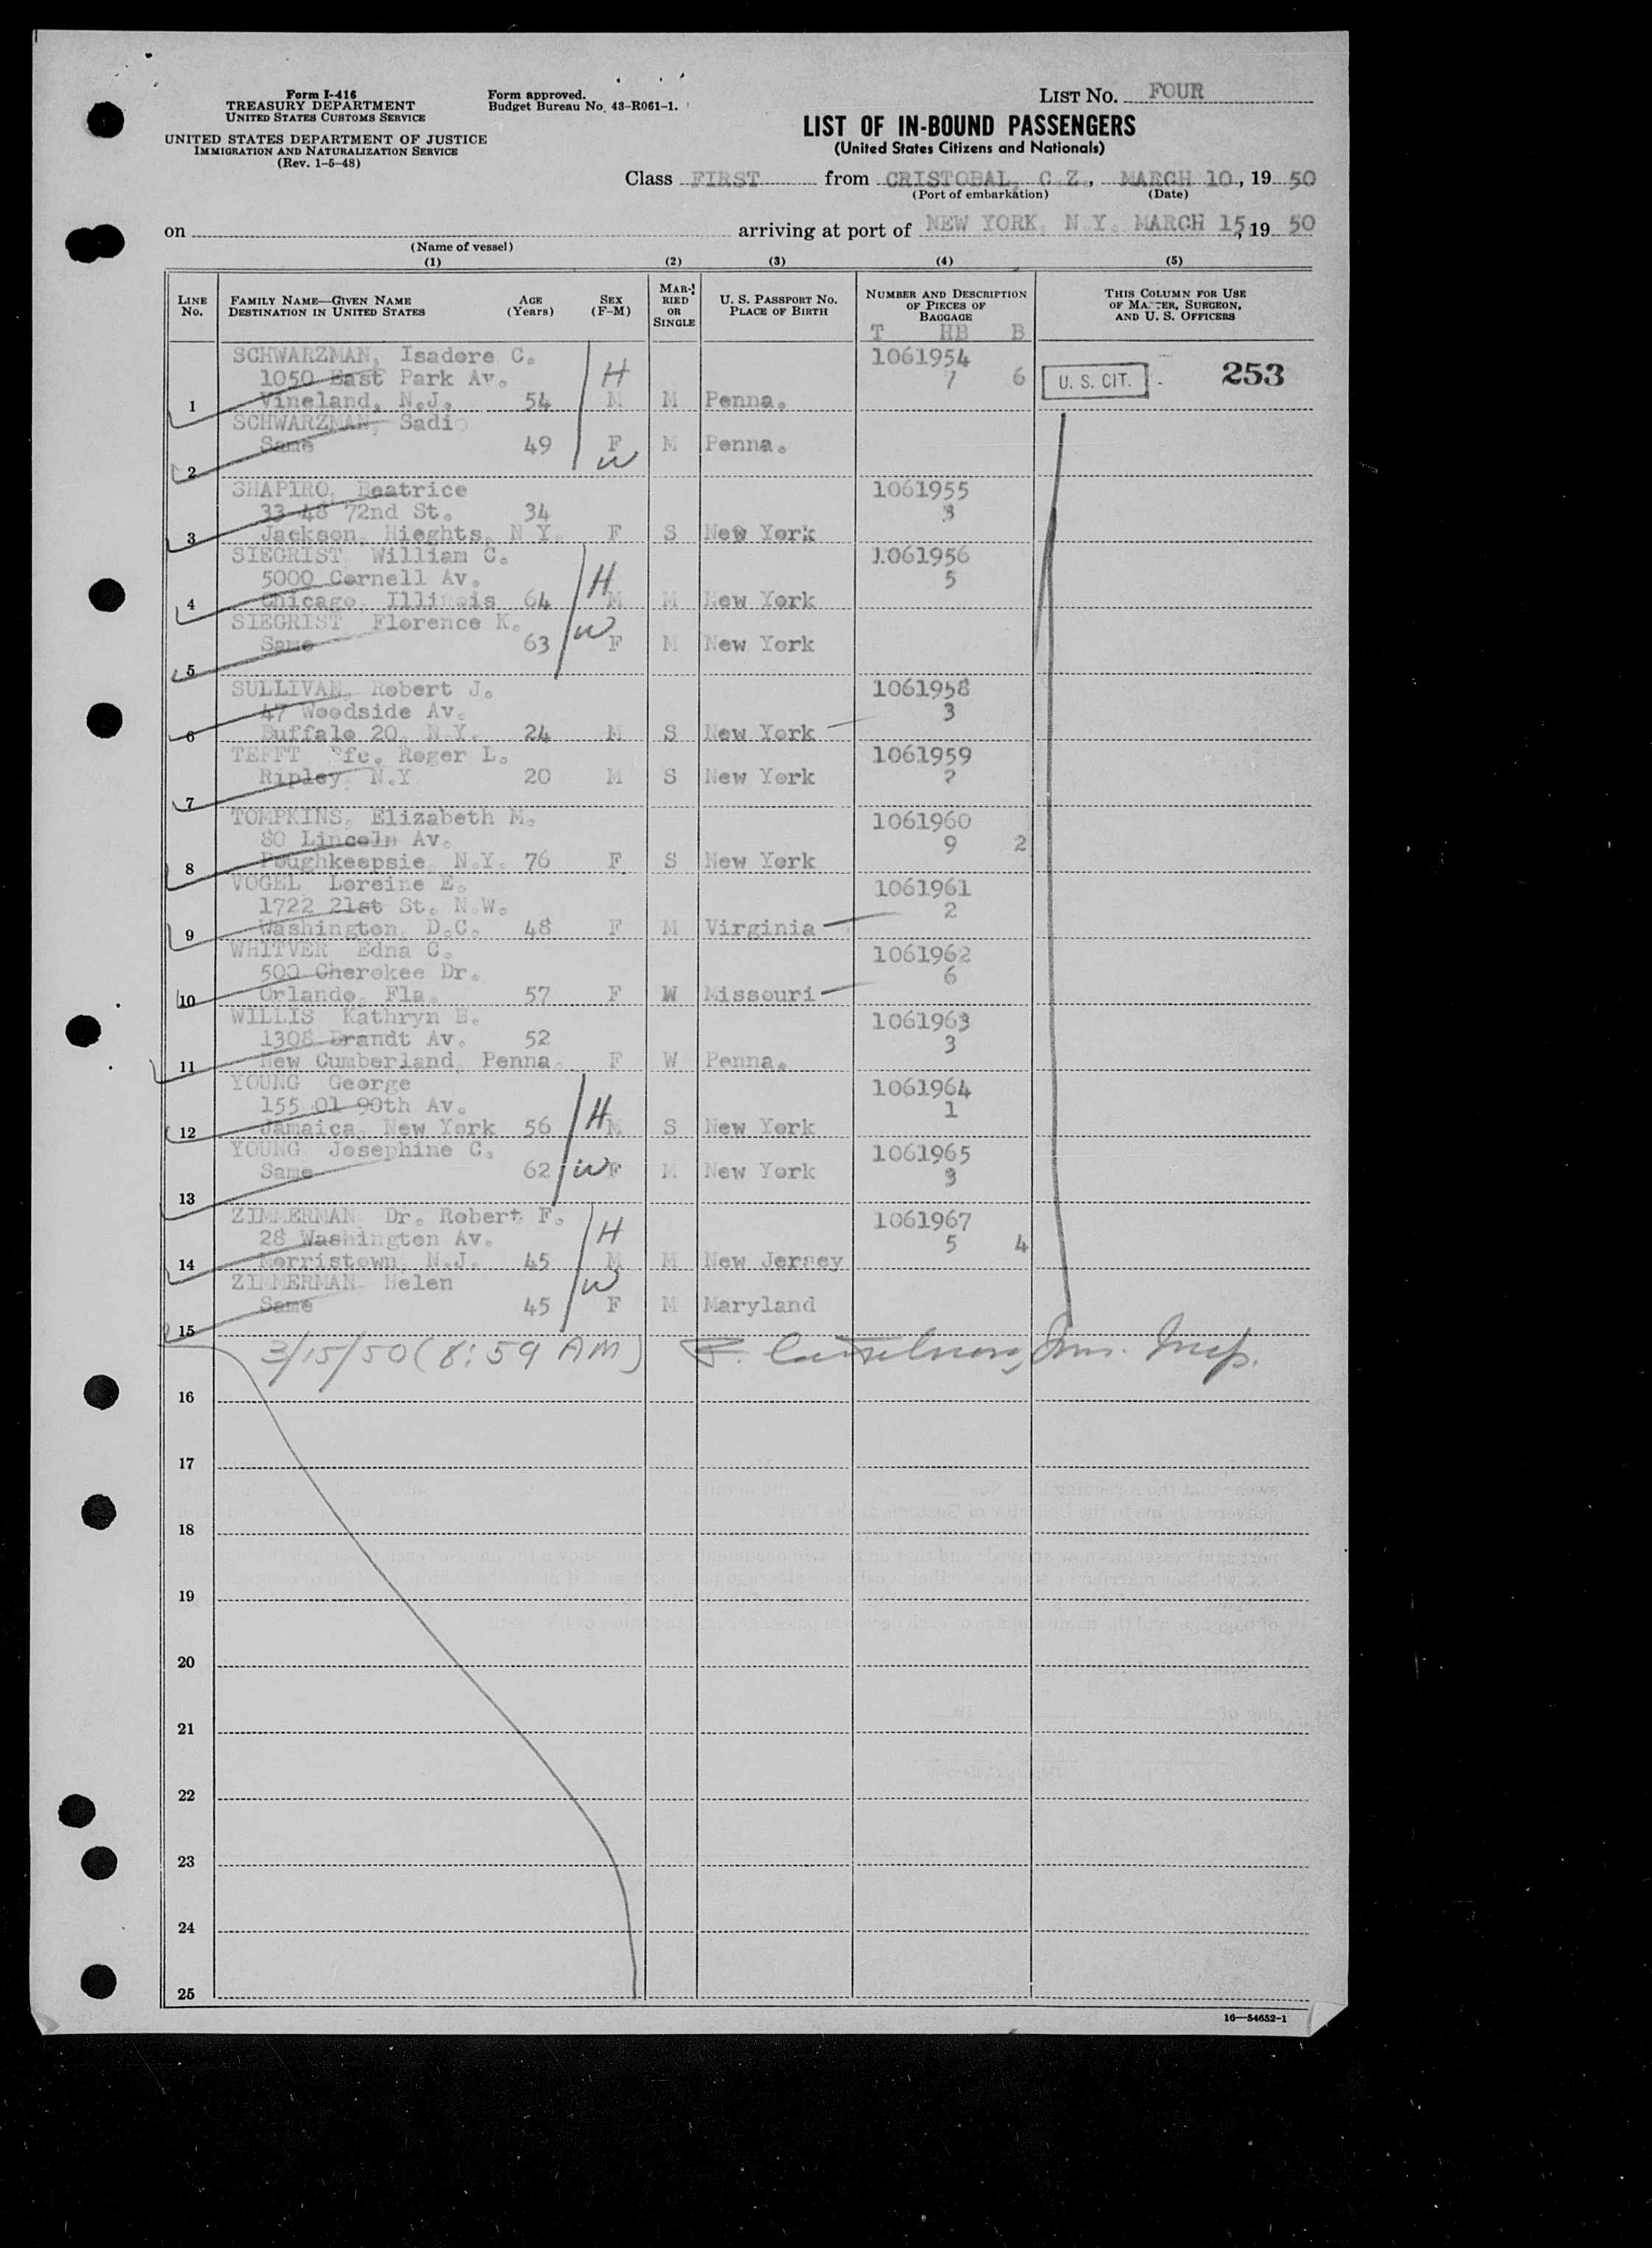 Form I-416
TREASURY DEPARTMENT
UNITED STATES CUSTOMS SERVICE
UNITED STATES DEPARTMENT OF JUSTICE
IMMIGRATION AND NATURALIZATION SERVICE
(Rev. 1-5-48)
Form approved.
Budget Bureau No. 43-R061-1.
LIST NO. FOUR
LIST OF IN-BOUND PASSENGERS
(United States Citizens and Nationals)
Class FIRST from CRISTOBAL, C.Z., MARCH 10, 19 50
(Port of embarkation) (Date)
on arriving at port of NEW YORK, N.Y. MARCH 15, 19 50
(Name of vessel)
(1) (2) (3) (4) (5)
LINE NO. FAMILY NAME—GIVEN NAME DESTINATION IN UNITED STATES AGE (Years) SEX (F-M) MARRIED OR SINGLE U. S. PASSPORT NO. PLACE OF BIRTH NUMBER AND DESCRIPTION OF PIECES OF BAGGAGE THIS COLUMN FOR USE OF MASTER, SURGEON, AND U. S. OFFICERS
T HB B
SCHWARZMAN, Isadore C. 1061954
1050 East Park Av. H 7 6 U. S. CIT. - 253
1 Vineland, N.J. 54 M M Penna.
SCHWARZMAN, Sadi
Same 49 F M Penna.
2 W
SHAPIRO, Beatrice 1061955
33-48 72nd St. 34 3
3 Jackson, Hieghts, N.Y. F S New York
SIEGRIST William C. 1061956
5000 Cornell Av. H 5
4 Chicago, Illinois 64 M M New York
SIEGRIST Florence K. W
Same 63 F M New York
5
SULLIVAN, Robert J. 1061958
47 Woodside Av. 3
6 Buffalo 20, N.Y. 24 M S New York
TEFFT Pfc. Roger L. 1061959
Ripley N.Y. 20 M S New York 2
7
TOMPKINS, Elizabeth M. 1061960
80 Lincoln Av. 9 2
8 Poughkeepsie, N.Y. 76 F S New York
VOGEL Loreine E. 1061961
1722 21st St. N.W. 2
9 Washington, D.C. 48 F M Virginia
WHITVER Edna C. 1061962
500 Cherokee Dr. 6
10 Orlando, Fla. 57 F W Missouri
WILLIS Kathryn B. 1061963
1308 Brandt Av. 52 3
11 New Cumberland, Penna. F W Penna.
YOUNG George 1061964
155 01 90th Av. H 1
12 Jamaica, New York 56 M S New York
YOUNG Josephine C. 1061965
Same 62 W F M New York 3
13
ZIMMERMAN Dr. Robert F. 1061967
28 Washington Av. H 5 4
14 Morristown, N.J. 45 M M New Jersey
ZIMMERMAN Helen W
Same 45 F M Maryland
15
3/15/50 (8:59 AM) Imm. Insp.
16
17
18
19
20
21
22
23
24
25
16—54652-1